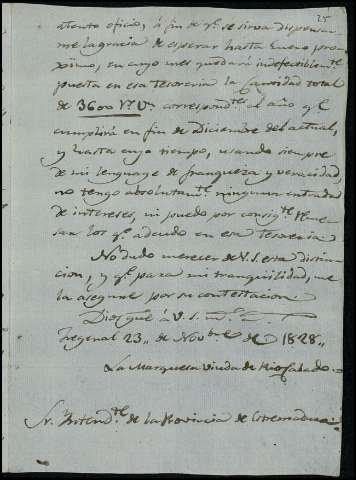 25
atento oficio, á fin de qe. se sirva dispensar
me la gracia de esperar hasta Enero pro-
ximo, en cuyo mes quedará indefectiblemte.
puesta en esa Tesoreria la cantidad total
de 3600 rs. vn. correspondte. al año qe.
cumplirá en fin de Diciembre del actual,
y hasta cuyo tiempo, usando siempre
de mi lenguage de franqueza y veracidad,
no tengo absolutamte. ninguna entrada
de intereses, ni puedo por consigte.
los qe. adeudo en esa Tesoreria.
No dudo merecer de V.S. esta distin
cion, y qe. para mi tranquilidad, me
la asegure por su contestacion.
Dios gue. á V.S. ms. as.
Fregenal 23 de Novbre. de 1828
La Marquesa viuda de Riocabado
Sr. Intendte. de la Provincia de Estremadura